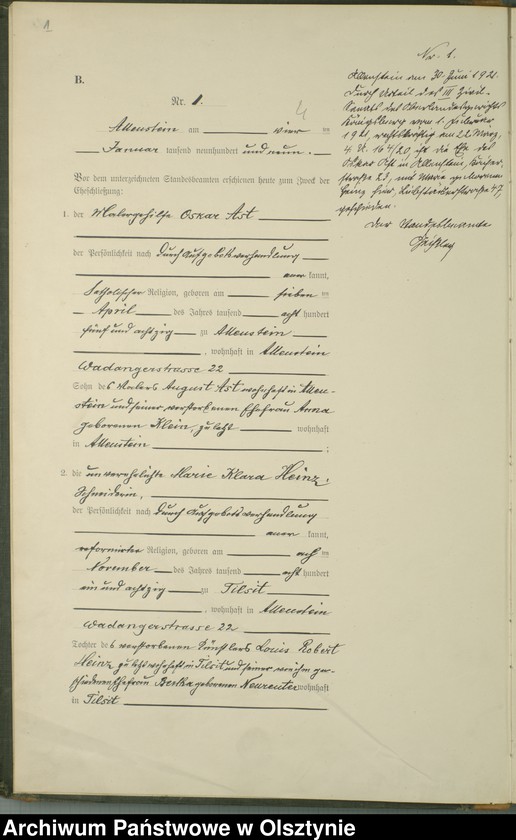 1
B.
Nr. 1.
4
Allenstein am vier ten
Januar tausend neunhundert und neun.
Vor dem unterzeichneten Standesbeamten erschienen heute zum Zweck der
Eheschließung:
1. der Malergehilfe Oskar Ast
der Persönlichkeit nach durch Aufgebotsverhandlung
aner kannt,
katholischer Religion, geboren am sieben ten
April des Jahres tausend acht hundert
fünf und achtzig zu Allenstein
, wohnhaft in Allenstein
Wadangerstrasse 22
Sohn des Malers August Ast wohnhaft in Allen-
stein und seiner verstorbenen Ehefrau Anna
geborenen Klein, zuletzt wohnhaft
in Allenstein ;
2. die unverehelichte Marie Klara Heinz,
Schneiderin,
der Persönlichkeit nach durch Aufgebotsverhandlung
aner kannt,
reformirter Religion, geboren am ach ten
November des Jahres tausend acht hundert
ein und achtzig zu Tilsit
, wohnhaft in Allenstein
Wadangerstrasse 22
Tochter des verstorbenen Künstlers Louis Robert
Heinz zuletzt wohnhaft in Tilsit und seiner von ihm ge-
schiedenen Ehefrau Bertha geborenen Neureuter wohnhaft
in Tilsit
Nr. 1.
Allenstein am 30. Juni 1921.
Durch Urteil des III Zivil-
Senats des Oberlandesgerichts
Königsberg vom 1. Februar
1921, rechtskräftig am 22 März,
4. U. 164/20, ist die Ehe des
Oskar Ast in Allenstein,
strasse 22, mit Marie
Heinz hier, Liebstädterstrasse 47,
geschieden.
Der Standesbeamte
Archiwum Państwowe w Olsztynie